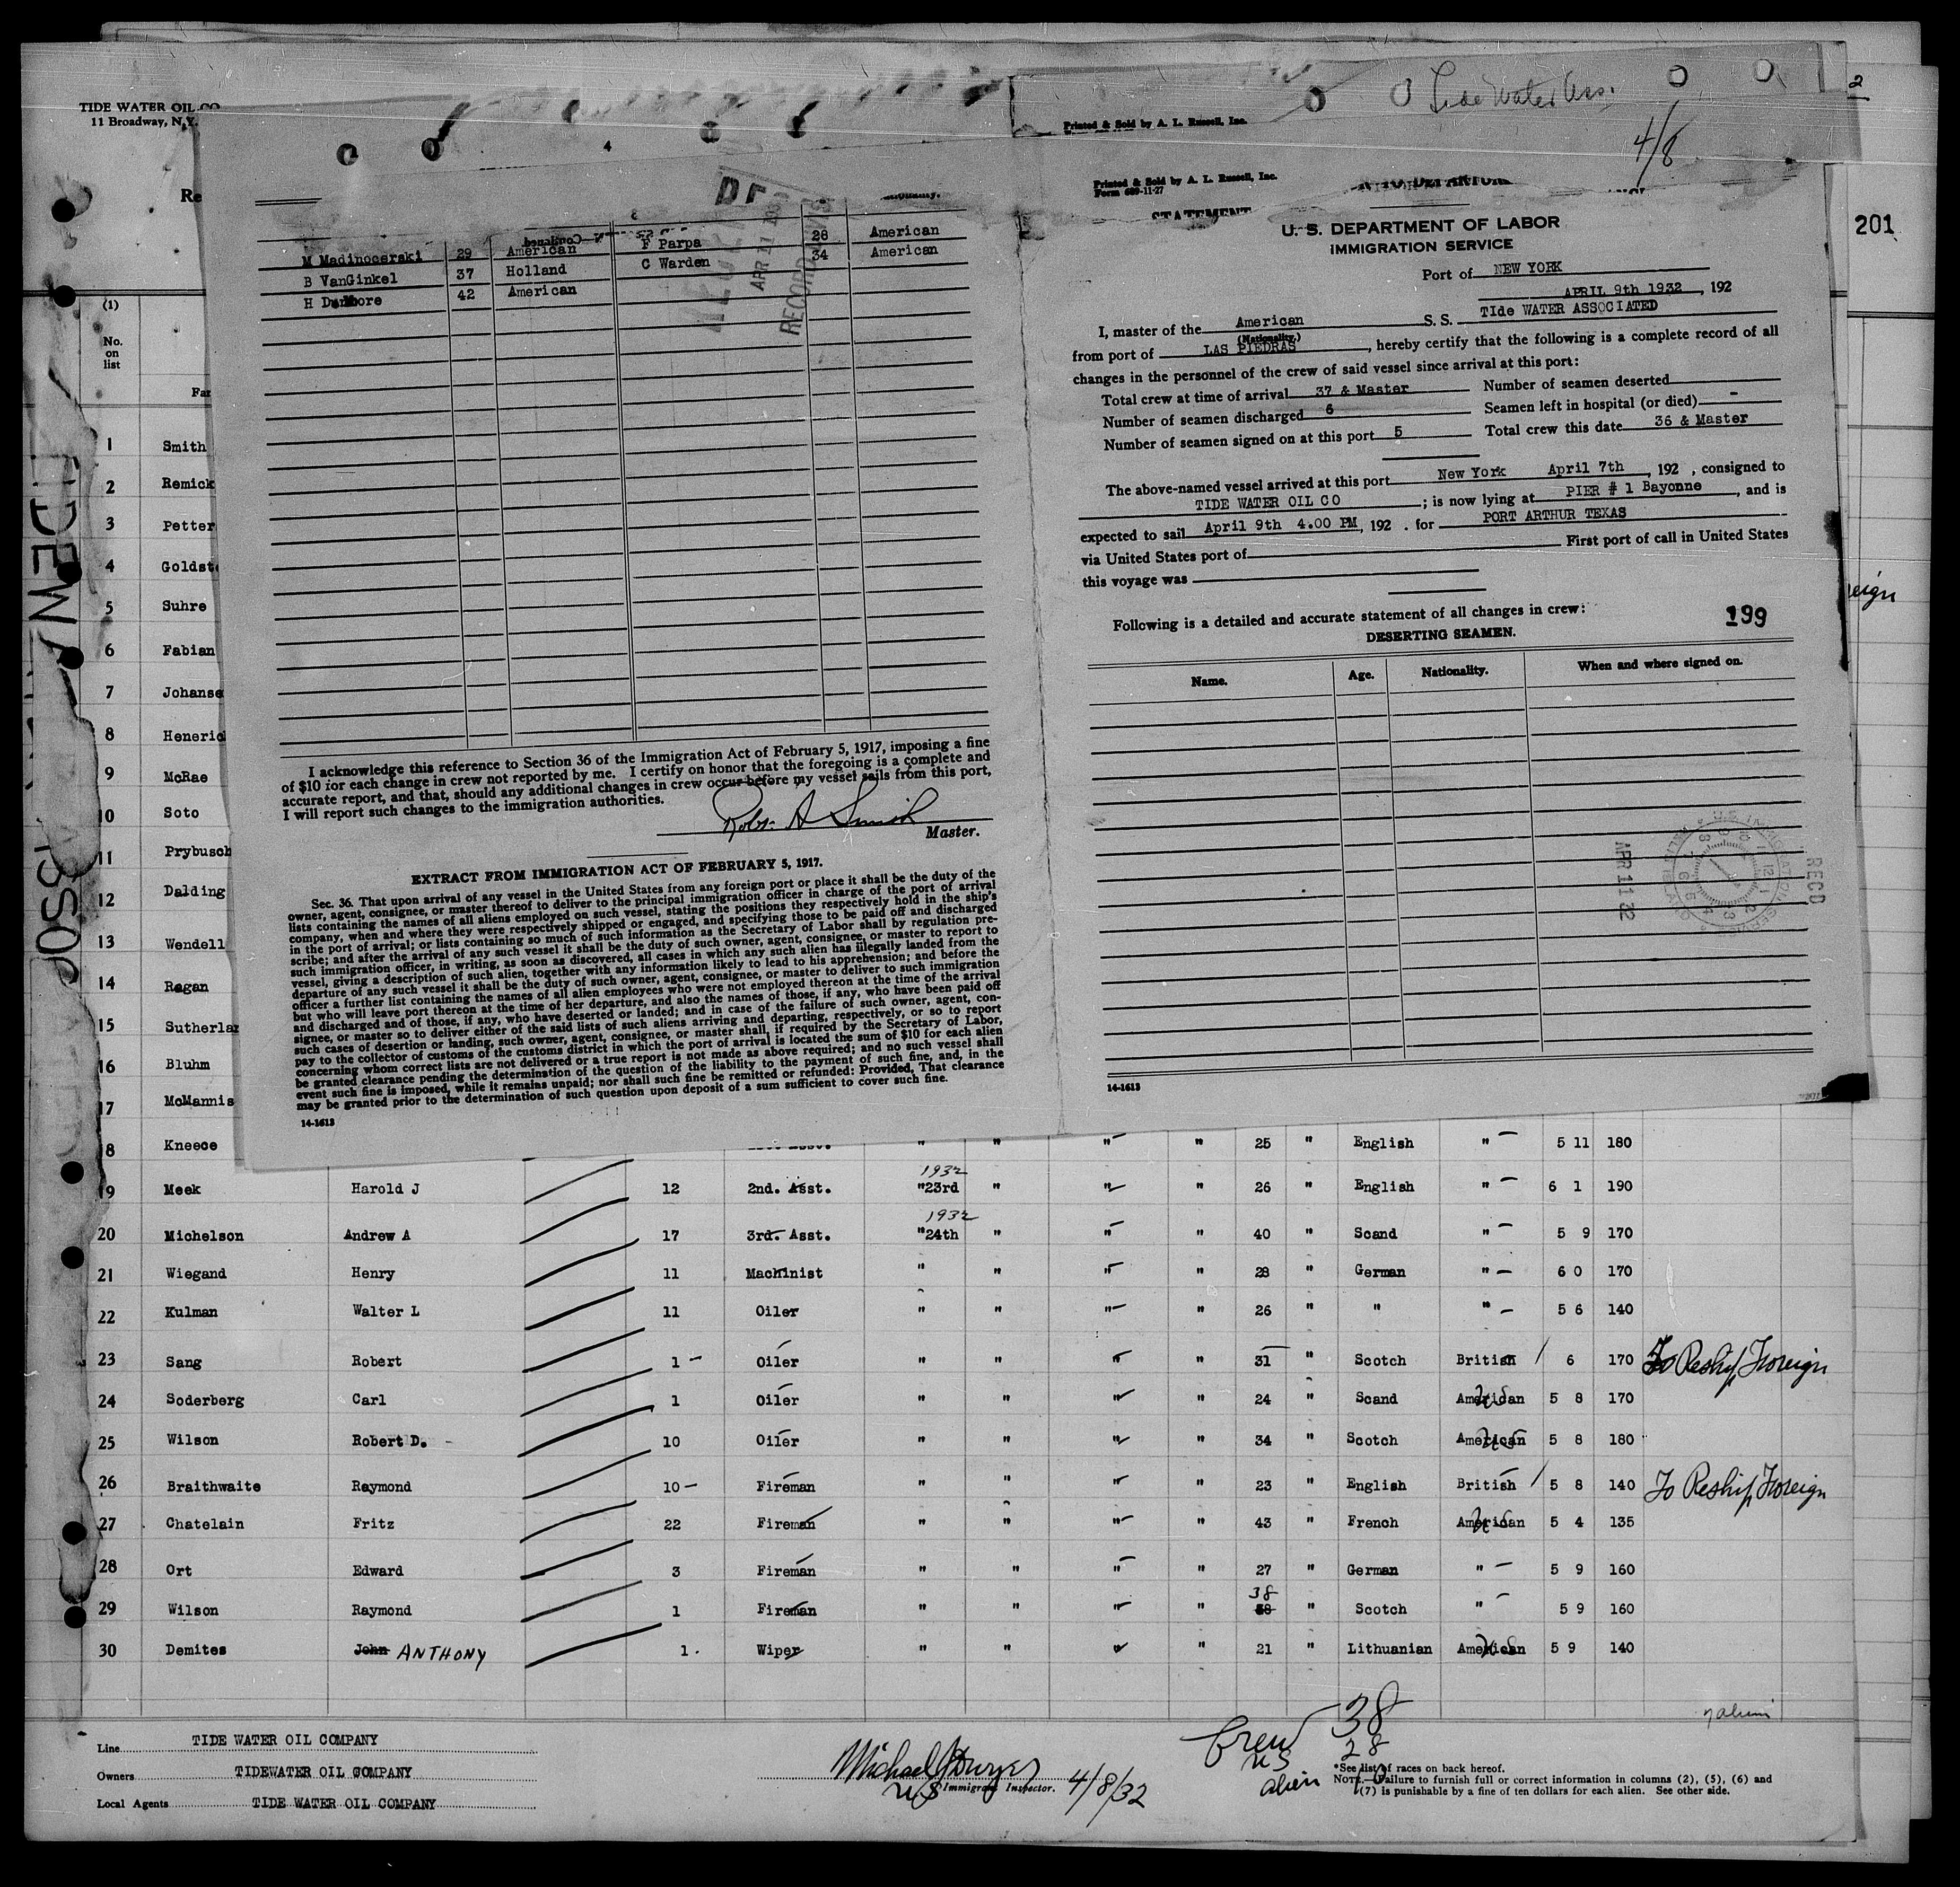 TIDE WATER OIL CO
11 Broadway, N.Y.
2
201
(1)
No.
on
list
4
M Madinocerski 29 American F Parpa 26 American
B VanGinkel 37 Holland C Warden 34 American
H Denmore 42 American
I acknowledge this reference to Section 36 of the Immigration Act of February 5, 1917, imposing a fine
of $10 for each change in crew not reported by me. I certify on honor that the foregoing is a complete and
accurate report, and that, should any additional changes in crew occur before my vessel sails from this port,
I will report such changes to the immigration authorities.
Robt. A Smith
Master.
EXTRACT FROM IMMIGRATION ACT OF FEBRUARY 5, 1917.
Sec. 36. That upon arrival of any vessel in the United States from any foreign port or place it shall be the duty of the
owner, agent, consignee, or master thereof to deliver to the principal immigration officer in charge of the port of arrival
lists containing the names of all aliens employed on such vessel, stating the positions they respectively hold in the ship's
company, when and where they were respectively shipped or engaged, and specifying those to be paid off and discharged
in the port of arrival; or lists containing so much of such information as the Secretary of Labor shall by regulation pre-
scribe; and after the arrival of any such vessel it shall be the duty of such owner, agent, consignee, or master to report to
such immigration officer, in writing, as soon as discovered, all cases in which any such alien has illegally landed from the
vessel, giving a description of such alien, together with any information likely to lead to his apprehension; and before the
departure of any such vessel it shall be the duty of such owner, agent, consignee, or master to deliver to such immigration
officer a further list containing the names of all alien employees who were not employed thereon at the time of the arrival
but who will leave port thereon at the time of her departure, and also the names of those, if any, who have been paid off
and discharged and of those, if any, who have deserted or landed; and in case of the failure of such owner, agent, con-
signee, or master so to deliver either of the said lists of such aliens arriving and departing, respectively, or so to report
such cases of desertion or landing, such owner, agent, consignee, or master shall, if required by the Secretary of Labor,
pay to the collector of customs of the customs district in which the port of arrival is located the sum of $10 for each alien
concerning whom correct lists are not delivered or a true report is not made as above required; and no such vessel shall
be granted clearance pending the determination of the question of the liability to the payment of such fine, and, in the
event such fine is imposed, while it remains unpaid; nor shall such fine be remitted or refunded: Provided, That clearance
may be granted prior to the determination of such question upon deposit of a sum sufficient to cover such fine.
14-1613
Tide Water Ass.
4/8
Printed & Sold by A. L. Russell, Inc.
Printed & Sold by A. L. Russell, Inc.
Form 689-11-27
STATEMENT
U. S. DEPARTMENT OF LABOR
IMMIGRATION SERVICE
Port of NEW YORK
APRIL 9th 1932, 192
I, master of the American S. S. TIde WATER ASSOCIATED
(Nationality.)
from port of LAS PIEDRAS, hereby certify that the following is a complete record of all
changes in the personnel of the crew of said vessel since arrival at this port:
Total crew at time of arrival 37 & Master Number of seamen deserted
Number of seamen discharged 6 Seamen left in hospital (or died) -
Number of seamen signed on at this port 5 Total crew this date 36 & Master
The above-named vessel arrived at this port New York April 7th, 192 , consigned to
TIDE WATER OIL CO; is now lying at PIER # 1 Bayonne, and is
expected to sail April 9th 4.00 PM, 192 . for PORT ARTHUR TEXAS
via United States port of First port of call in United States
this voyage was
Following is a detailed and accurate statement of all changes in crew:
199
DESERTING SEAMEN.
Name. Age. Nationality. When and where signed on.
APR 11 32
RECD
14-1613
1 Smith
2 Remick
3 Petter
4 Goldst
5 Suhre
6 Fabian
7 Johanse
8 Heneric
9 McRae
10 Soto
11 Prybusch
12 Dalding
13 Wendell
14 Ragan
15 Sutherlan
16 Bluhm
17 McMannis
8 Kneece " " " " 25 " English " 5 11 180
19 Meek Harold J 12 2nd. Asst. 1932 "23rd " " " 26 " English " 6 1 190
20 Michelson Andrew A 17 3rd. Asst. 1932 "24th " " " 40 " Scand " 5 9 170
21 Wiegand Henry 11 Machinist " " " " 28 " German " 6 0 170
22 Kulman Walter L 11 Oiler " " " " 26 " " " 5 6 140
23 Sang Robert 1 Oiler " " " " 31 " Scotch British 6 170 To Reship Foreign
24 Soderberg Carl 1 Oiler " " " " 24 " Scand American US 5 8 170
25 Wilson Robert D. 10 Oiler " " " " 34 " Scotch American US 5 8 180
26 Braithwaite Raymond 10 Fireman " " " " 23 " English British 5 8 140 To Reship Foreign
27 Chatelain Fritz 22 Fireman " " " " 43 " French American US 5 4 135
28 Ort Edward 3 Fireman " " " " 27 " German " 5 9 160
29 Wilson Raymond 1 Fireman " " " " 38 " Scotch " 5 9 160
30 Demites John ANTHONY 1. Wiper " " " " 21 " Lithuanian American US 5 9 140
Line TIDE WATER OIL COMPANY
Owners TIDEWATER OIL COMPANY
Local Agents TIDE WATER OIL COMPANY
Michael Dwyer
US Immigrant Inspector. 4/8/32
Crew 38
US 28
alien 10
*See list of races on back hereof.
NOTE.—Failure to furnish full or correct information in columns (2), (5), (6) and
(7) is punishable by a fine of ten dollars for each alien. See other side.